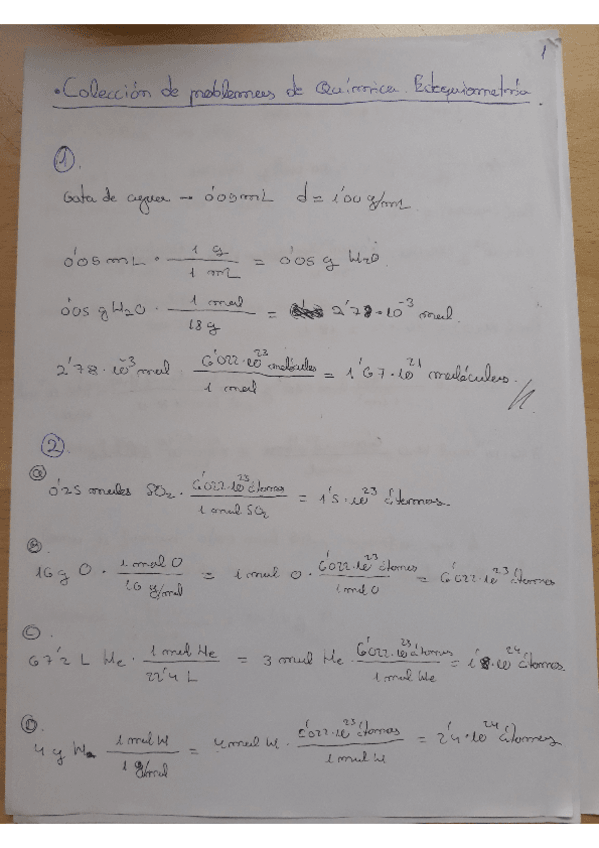 1
• Colección de problemas de Química. Estequiometría.
1.
Gota de agua → 0'05 mL d = 1'00 g/mL
0'05 mL · 1 g / 1 mL = 0'05 g H₂O
0'05 g H₂O · 1 mol / 18 g = 2'78·10⁻³ mol.
2'78·10⁻³ mol · 6'022·10²³ moléculas / 1 mol = 1'67·10²¹ moléculas.
2.
a
0'25 moles SO₂ · 6'022·10²³ átomos / 1 mol SO₂ = 1'5·10²³ átomos.
B
16 g O · 1 mol O / 16 g/mol = 1 mol O · 6'022·10²³ átomos / 1 mol O = 6'022·10²³ átomos
C
67'2 L He · 1 mol He / 22'4 L = 3 mol He · 6'022·10²³ átomos / 1 mol He = 1'8·10²⁴ átomos.
D
4 g H₂ 1 mol H / 1 g/mol = 4 mol H · 6'022·10²³ átomos / 1 mol H = 2'4·10²⁴ átomos